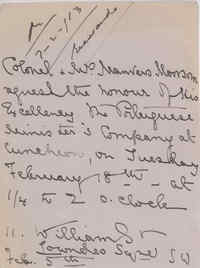 Colonel & Mrs Manners Morrom
request the honour of His
Excellency the Portuguese
Minister's Company at
Luncheon, on Tuesday
February 18th - at
1/4 to 2 o'clock
11. William St
Lowndes Sqre SW
Feb. 5th